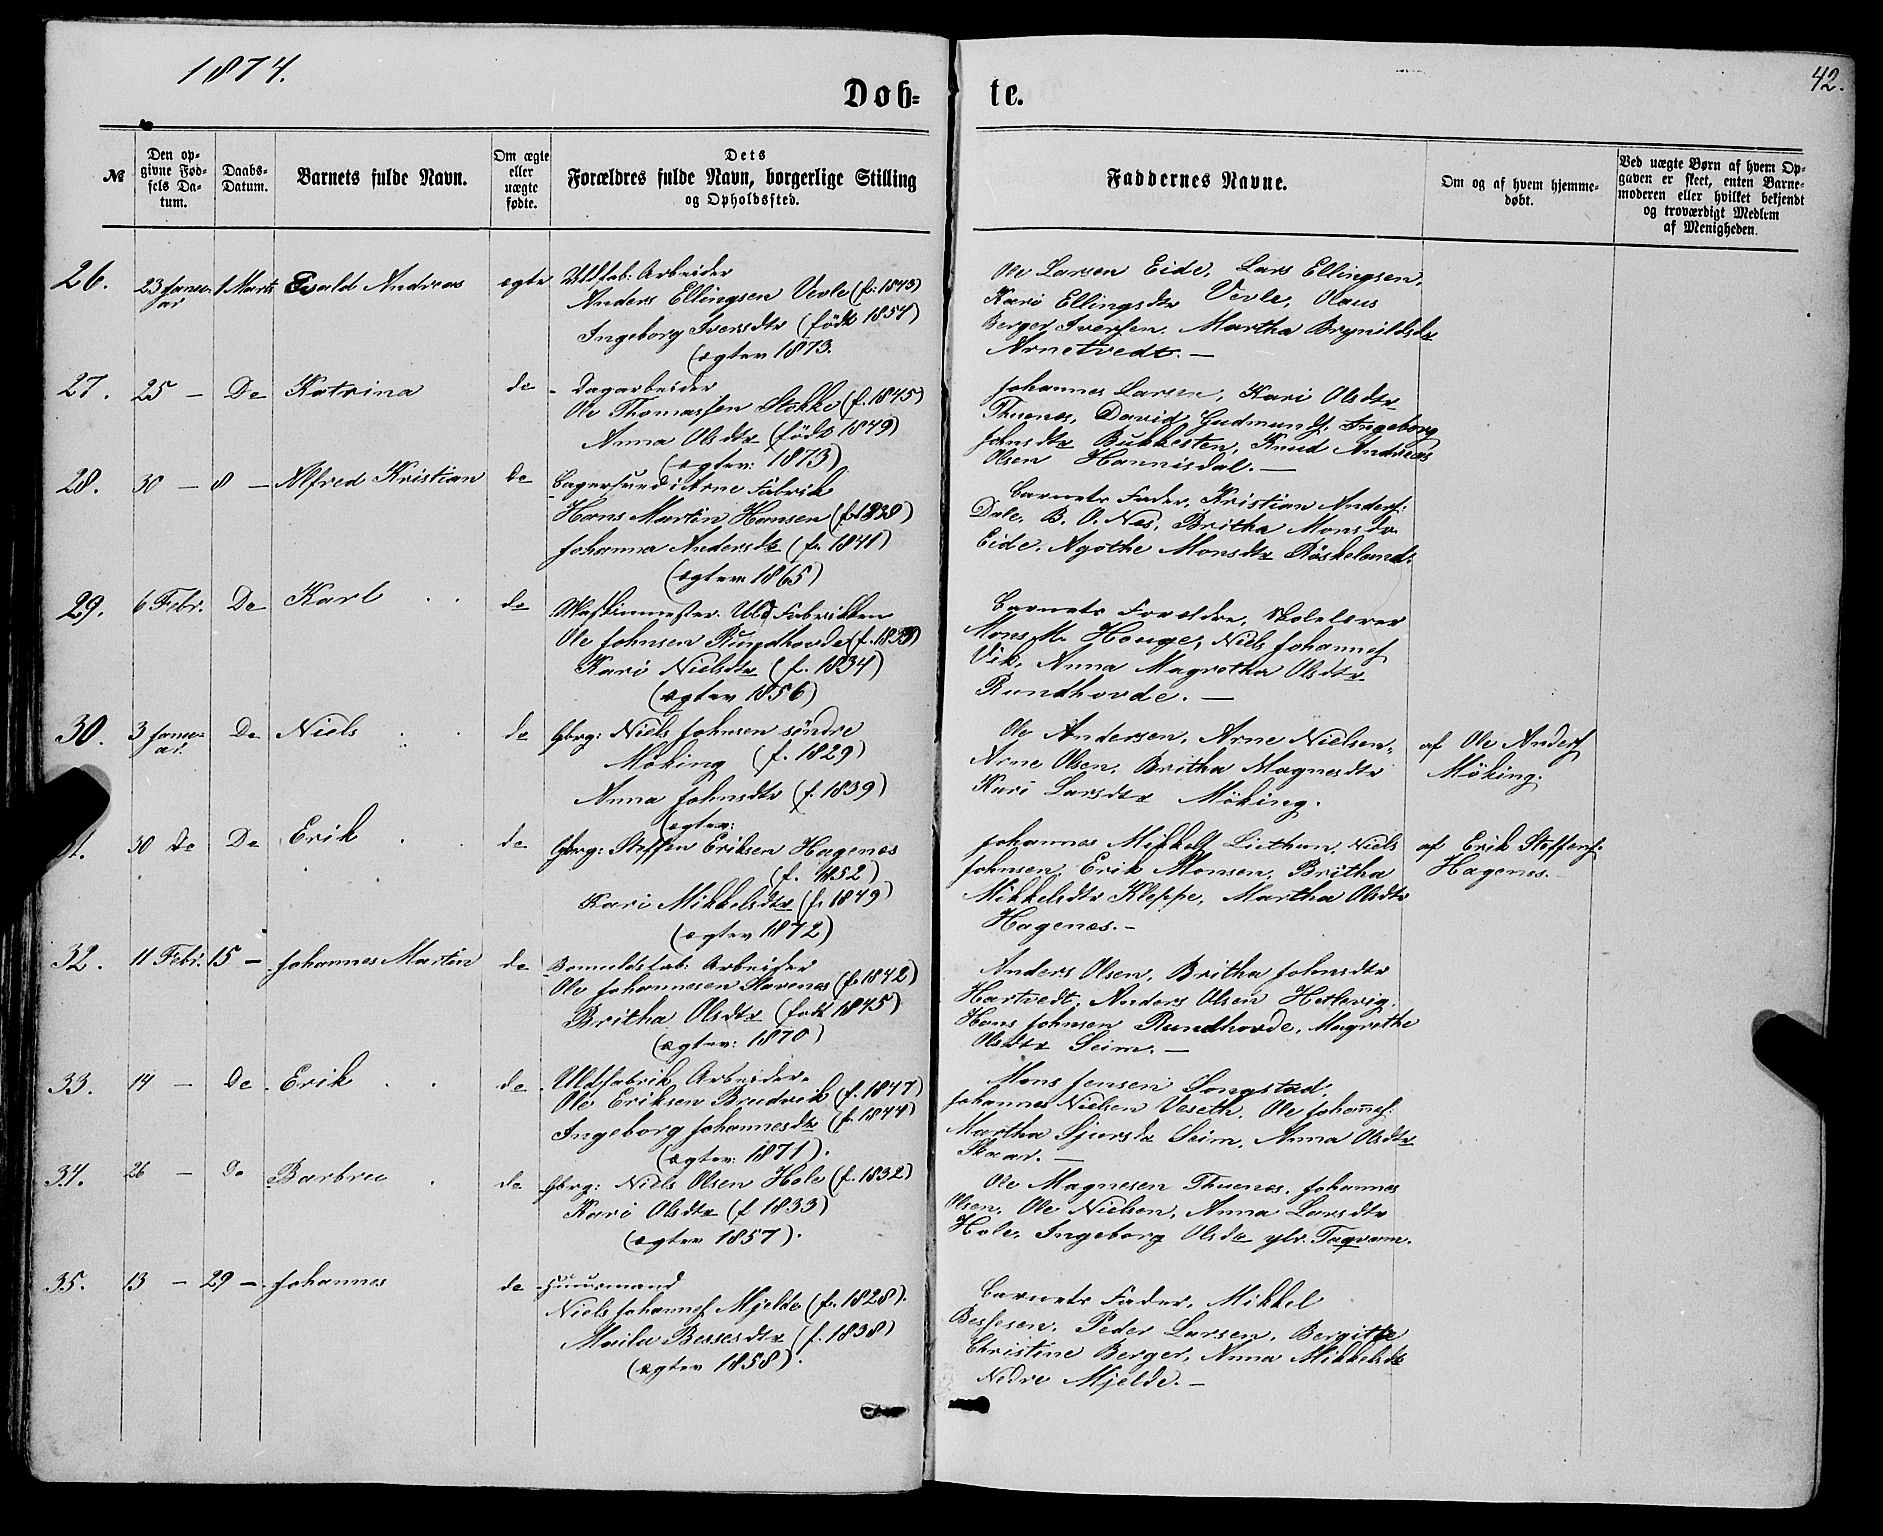 1874.
42.
Døb-
te.
№
Den op-
givne Fød-
sels Da-
tum.
Daabs-
Datum.
Barnets fulde Navn.
Om ægte
eller
uægte
fødte.
Dets
Forældres fulde Navn, borgerlige Stilling
og Opholdssted.
Faddernes Navne.
Om og af hvem hjemme-
døbt.
Ved uægte Børn af hvem Op-
gaven er skeet, enten Barne-
moderen eller hvilket bekjendt
og troværdigt Medlem
af Menigheden.
26.
23 Janu-
ar
1 Marts
Evald Andreas
ægte
Uldfab: Arbeider
Anders Ellingsen Vevle (f. 1843)
Ingeborg Iversdtr (født 1851)
(ægtev 1873.
Ole Larsen Eide, Lars Ellingsen,
Kari Ellingsdtr Vevle, Olaus
Berger Iversen, Martha Brynildsdtr
Arnetvedt. —
27.
25 —
De
Katrina
de
Dagarbeider
Ole Thomassen Stokke (f. 1845)
Anna Olsdtr (født 1849)
(ægtev: 1873)
Johannes Larsen, Kari Olsdtr
Thunes, David Gudmunds: Ingeborg
Johnsdtr Bukkesten, Knud Andreas
Olsen Hannisdal. —
28.
30 —
8 —
Alfred Kristian
de
Bagersvend i Arne Fabrik
Hans Martin Hansen (f. 1838)
Johanna Andersdtr (f. 1841)
(ægtev 1865)
Barnets Fader, Kristian Anders:
Dale, B. O. Nes, Britha Monsdr
Eide, Agothe Monsdtr Röskeland.
29.
6 Febr.
De
Karl
de
Maskinmester Uld Fabrikken
Ole Johnsen Rundhovde (f. 1833)
Kari Nielsdtr (f. 1834)
(ægtev 1856)
Barnets Forældre, Skolelærer
Mons M. Houge, Niels Johannes
Vik, Anna Magretha Olsdtr
Rundhovde. —
30.
3 Janu-
ar.
De
Niels
de
Gbrg: Niels Johnsen söndre
Möking (f. 1829)
Anna Johnsdtr (f. 1839)
(ægtev:
Ole Andersen, Arne Nielsen,
Arne Olsen, Britha Magnesdtr
Kari Larsdtr Möking.
af Ole Anders
Möking.
1.
30 de
De
Erik
de
Gbrg: Steffen Eriksen Hagenæs
(f. 1852)
Kari Mikkelsdtr (f. 1849)
(ægtev 1872)
Johannes Mikkels Liethun, Niels
Johnsen, Erik Monsen, Britha
Mikkelsdtr Kleppe, Martha Olsdtr
Hagenæs. —
af Erik Steffens:
Hagenes. —
32.
11 Febr.
15 —
Johannes Martin
de
Bomuldsfab: Arbeider
Ole Johannesen Stavenes (f. 1842)
Britha Olsdtr (født 1845)
(ægtev: 1870)
Anders Olsen, Britha Johnsdtr
Hartvedt, Anders Olsen Hetlevig,
Hans Johnsen Rundhovde, Magrethe
Olsdtr Seim. —
33.
14 —
De
Erik
de
Uldfabrik Arbeider
Ole Eriksen Brudvik (f. 1847)
Ingeborg Johannesdtr (f. 1844)
(ægtev: 1871).
Mons Jensen Songstad,
Johannes Nielsen Veseth, Ole Johannes:
Martha Sjursdr Seim, Anna Olsdtr
Skaar. —
34.
26 —
De
Barbru
de
Gbrg: Niels Olsen Hole (f. 1832)
Kari Olsdtr (f 1833)
(ægtev 1857).
Ole Magnesen Thunes, Johannes
Olsen, Ole Nielsen, Anna Larsdtr
Hole, Ingeborg Olsdr ytr. Taqvam.
35.
13 —
29 —
Johannes
de
Huusmand
Niels Johannes Mjelde (f. 1828).
Marita Bessesdtr (f. 1838)
(ægtev 1858).
Barnets Fader, Mikkel
Bessesen, Peder Larsen, Bergitte
Christine Berger, Anna Mikkelsdtr
Nedre Mjelde. —